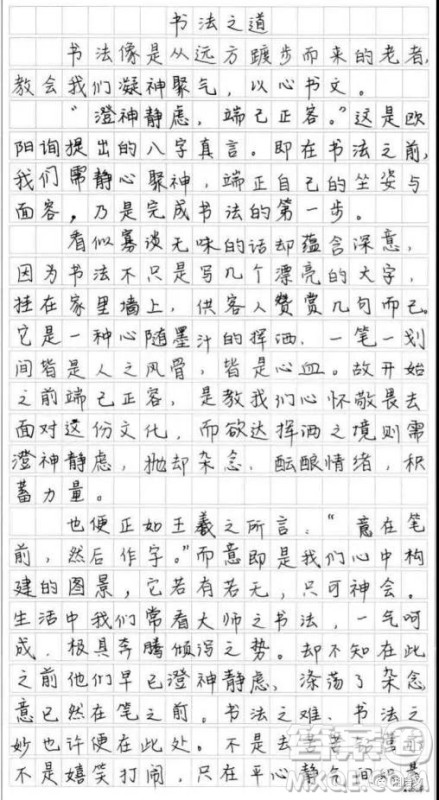 书法之道
书法像是从远方踱步而来的老者,
教会我们凝神聚气，以心书文。
"澄神静虑，端己正容。"这是欧
阳询提出的八字真言。即在书法之前,
我们需静心聚神，端正自己的坐姿与
面容，乃是完成书法的第一步。
看似寡淡无味的话却蕴含深意，
因为书法不只是写几个漂亮的大字，
挂在家里墙上，供客人赞赏几句而已。
它是一种心随墨汁的挥洒，一笔一划
间皆是人之风骨，皆是心血。故开始
之前端己正容，是教我们心怀敬畏去
面对这份文化，而欲达挥洒之境则需
澄神静虑，抛却杂念，酝酿情绪，积
蓄力量。
也便正如王羲之所言："意在笔
前，然后作字。"而意即是我们心中构
建的图景，它若有若无，只可神会。
生活中我们常看大师之书法，一气呵
成，极具奔腾倾泻之势。却不知在此
之前他们早已澄神静虑，涤荡了杂念
意已然在笔之前。书法之难，书法之
妙也许便在此处。不是去
不是嬉笑打闹，只在平心静气间
MXQE.COM